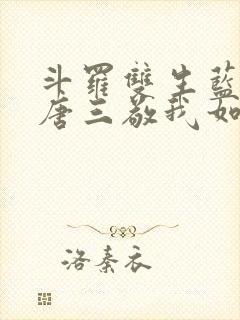 斗羅雙生藍
唐三敬我如
洛秦衣